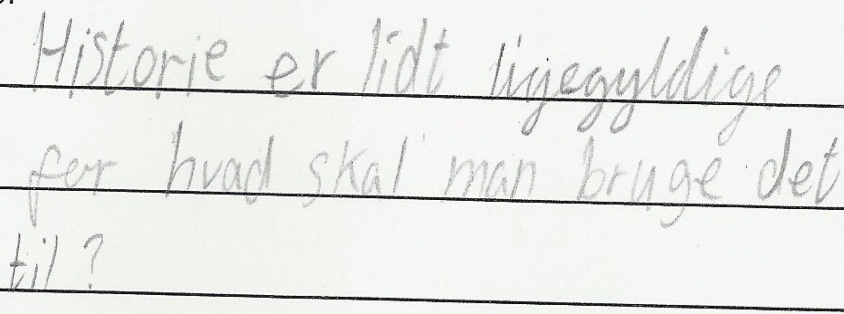 Historie er lidt ligegyldige
for hvad skal man bruge det
til?